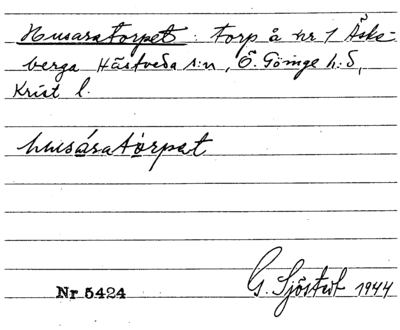 Husaratorpet: torp å nr 1 Äske-
berga Hästveda s:n, Ö. Göinge h:d,
Krist l.
husáratòrpat
Nr 5424
G. Sjöstedt 1944